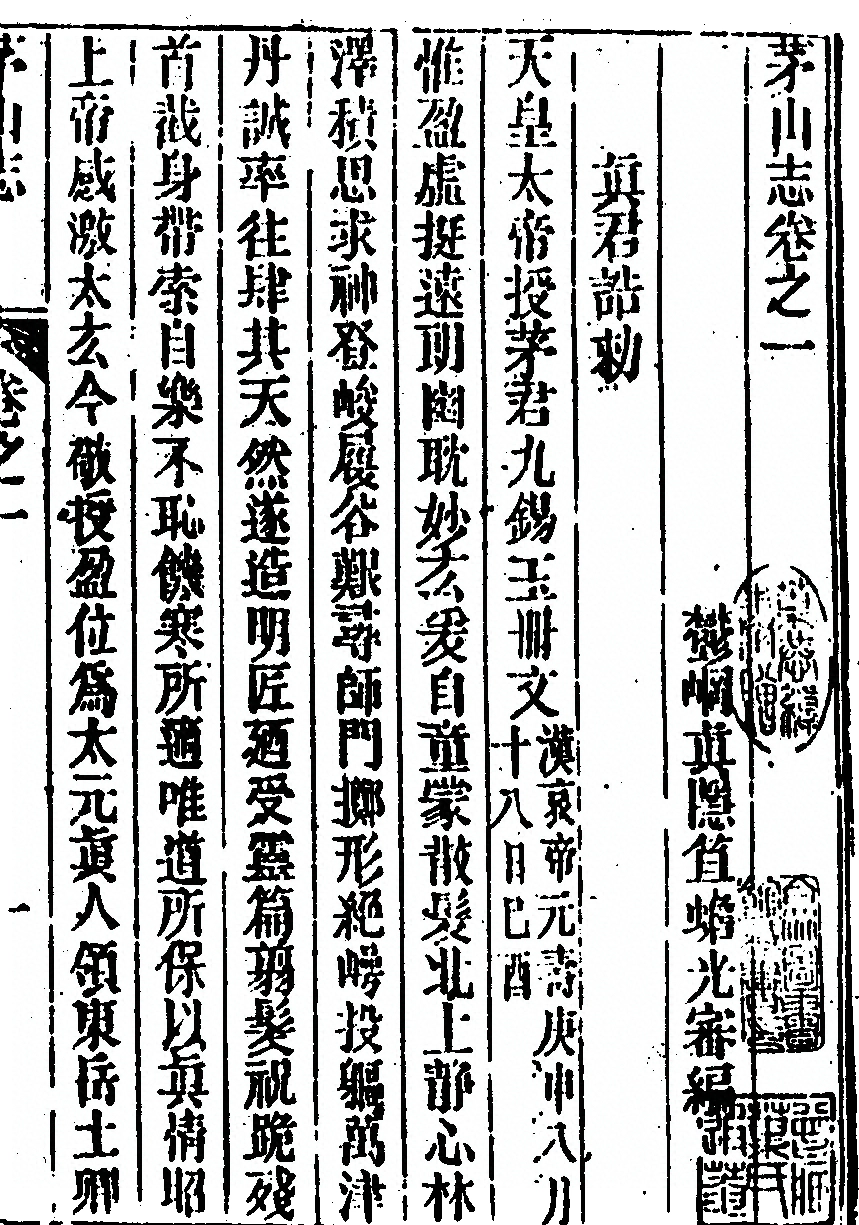 茅山志卷之一
鬱岡眞隱笪蟾光審編
眞君誥勑
天皇太帝授茅君九錫玉冊文漢哀帝元壽庚申八月十八日己酉
惟盈虛挺遠朗幽耽妙玄爰自童蒙散髮北上靜心林
澤積思求神登峻履谷艱尋師門擲形絕崿投軀萬津
丹誠率往肆其天然遂造明匠廼受靈篇剪髮祝跪殘
首截身帶索自樂不恥饑寒所適唯道所保以眞情昭
上帝感激太玄今敬授盈位爲太元眞人領東岳上卿
茅山志
卷之一
一